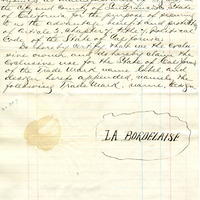 the City and County of San Francisco State
of California for the purpose of securing
to us the advantage benefit and privilege
of Article 3, Chapter 7, title 7, Political
Code of the State of California.
Do hereby certify that we the
sole owner and hereby claim the
exclusive use for the State of California
of the Trade Mark name label and
design hereto appended, namely the
following Trade Mark, name, design
LA BORDELAISE